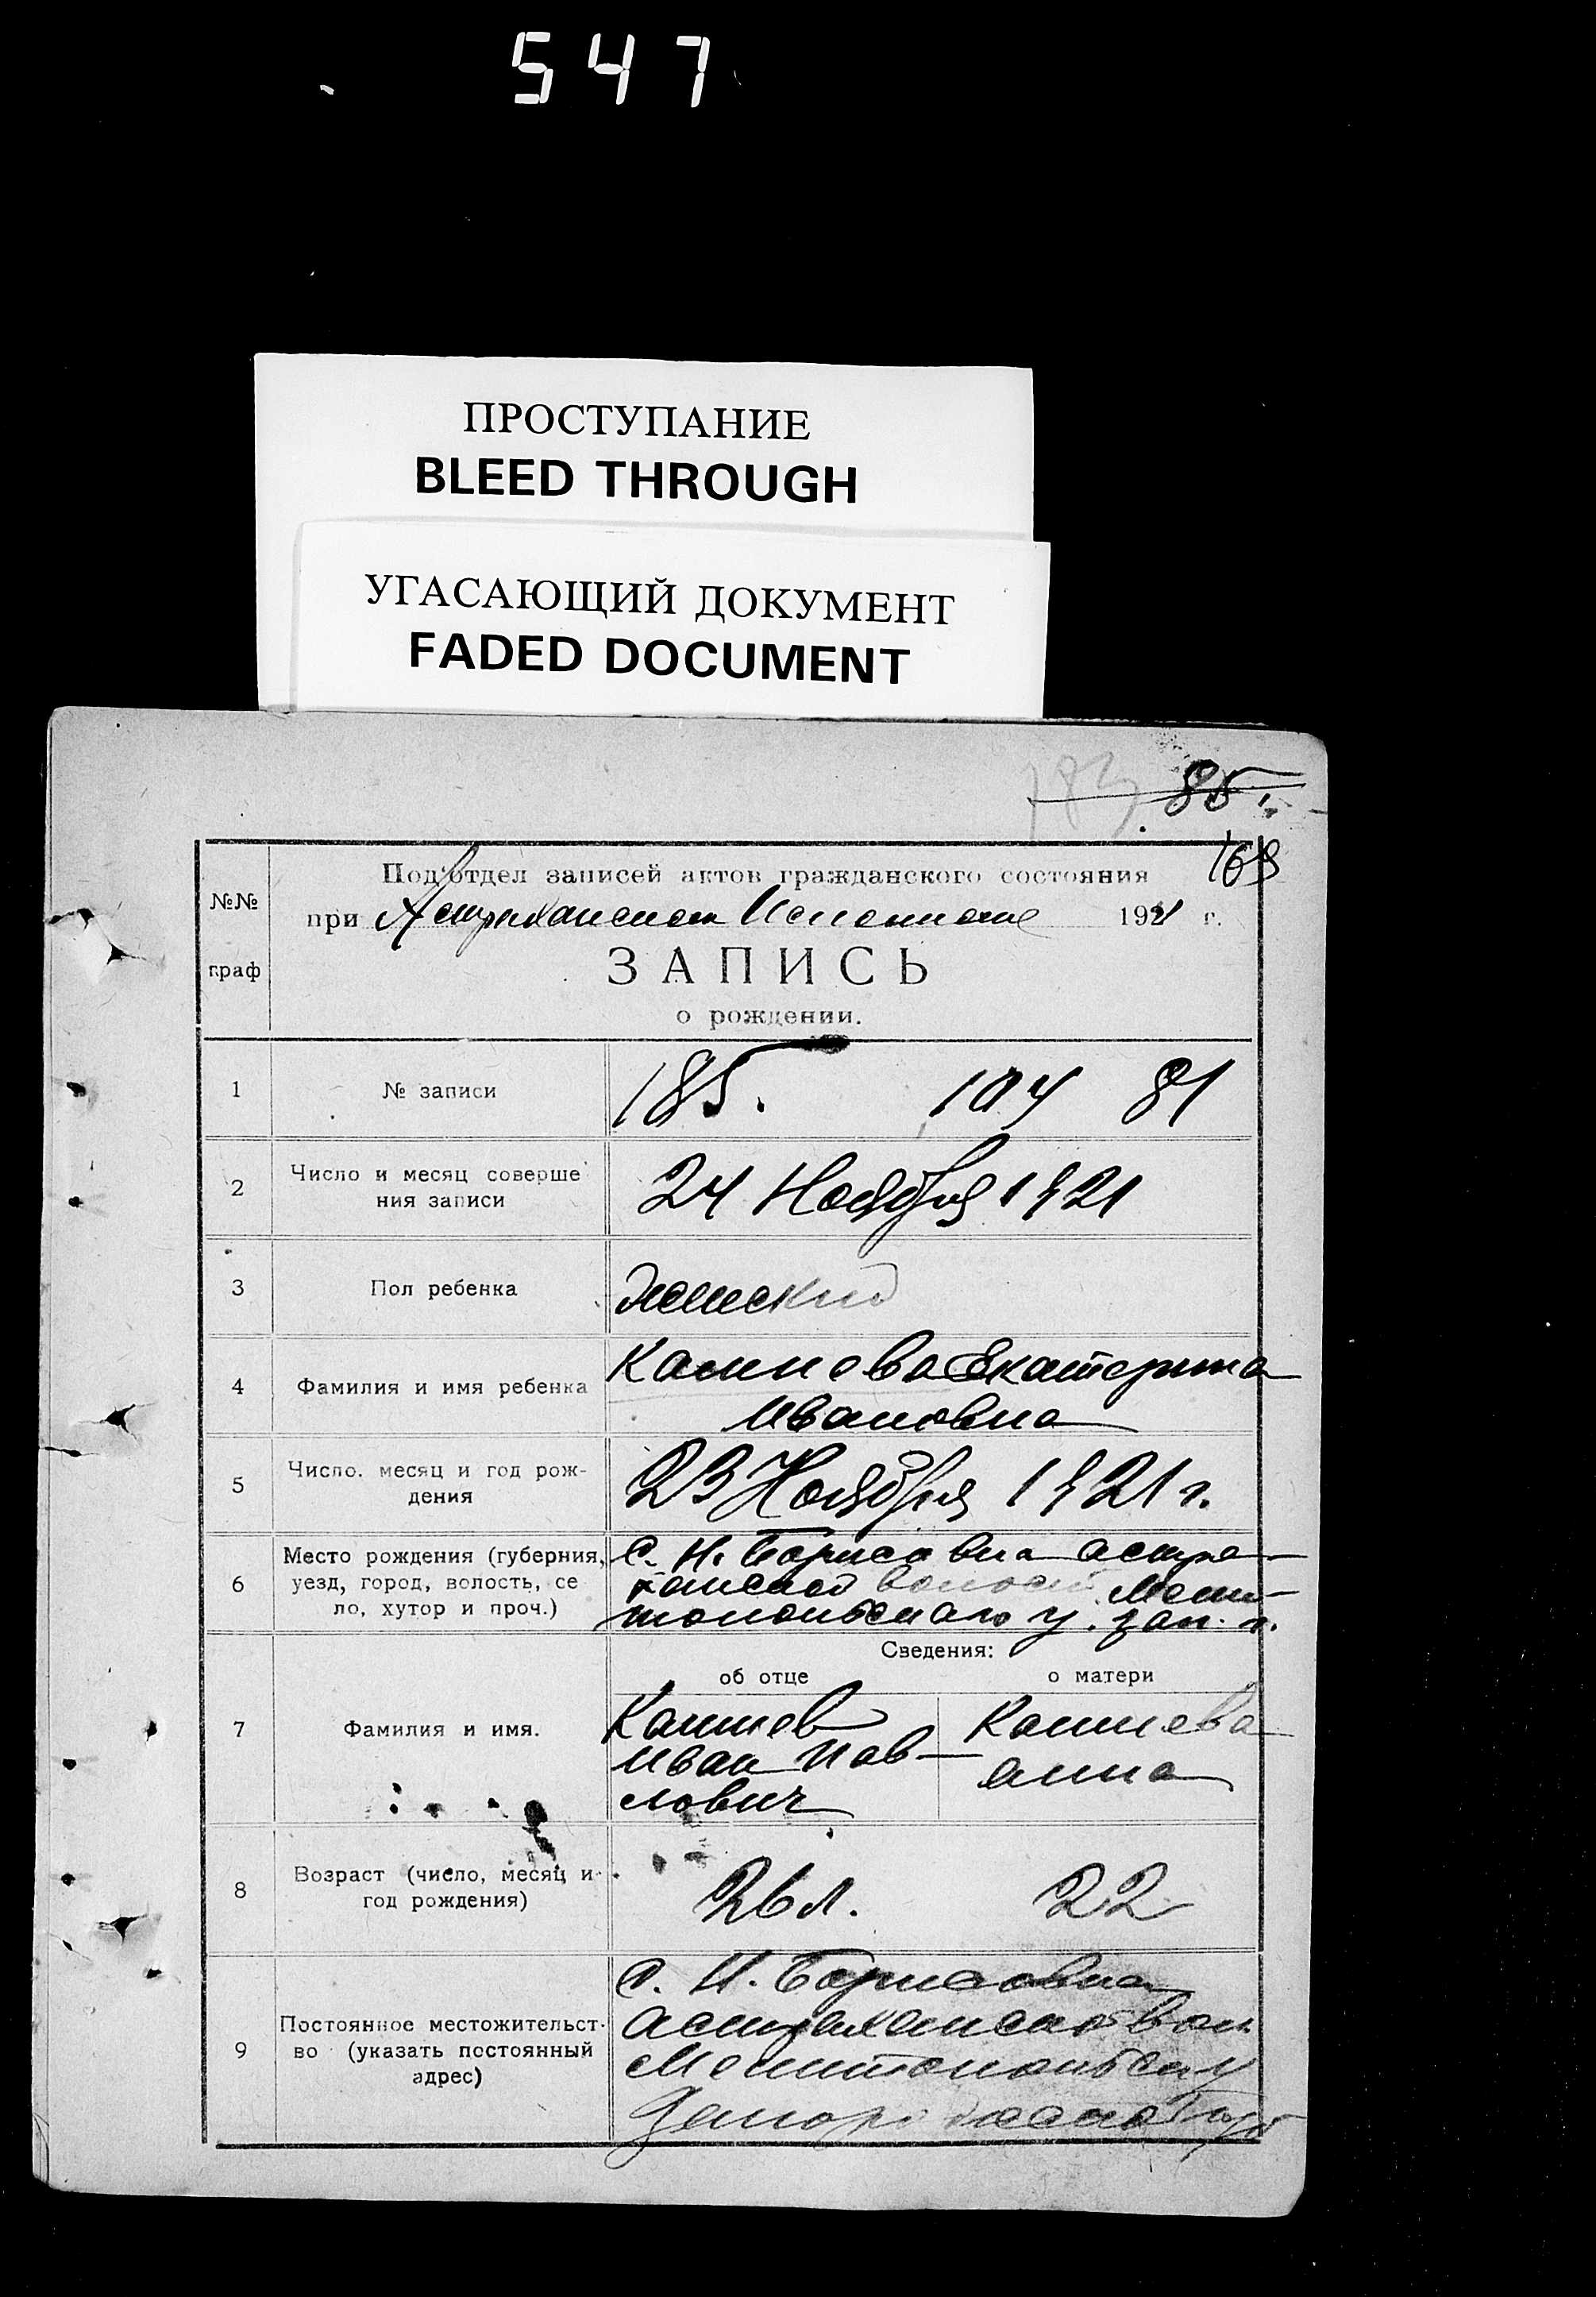 547
ПРОСТУПАНИЕ
BLEED THROUGH
УГАСАЮЩИЙ ДОКУМЕНТ
FADED DOCUMENT
183 85.
169
№№
граф
Под'отдел записей актов гражданского состояния
при Астраханском 1921 г.
ЗАПИСЬ
о рождении.
1 № записи 185. 104 81
2 Число и месяц соверше
ния записи
24 Ноября 1921
3 Пол ребенка женский
4 Фамилия и имя ребенка
Калиева Екатерина
Ивановна
5 Число. месяц и год рож-
дения
23 Ноября 1921 г.
6 Место рождения (губерния,
уезд, город, волость, се
ло, хутор и проч.)
С. Н. Борисовка Астра-
ханской волости Мели-
топольскаго у. Зап. г.
Сведения:
об отце о матери
7 Фамилия и имя.
Иван Пав-
лович
Анна
8 Возраст (число, месяц и
год рождения)
26 л. 22
9 Постоянное местожительст-
во (указать постоянный
адрес)
С. Н. Борисовка
Астраханской вол
Мелитопольск у